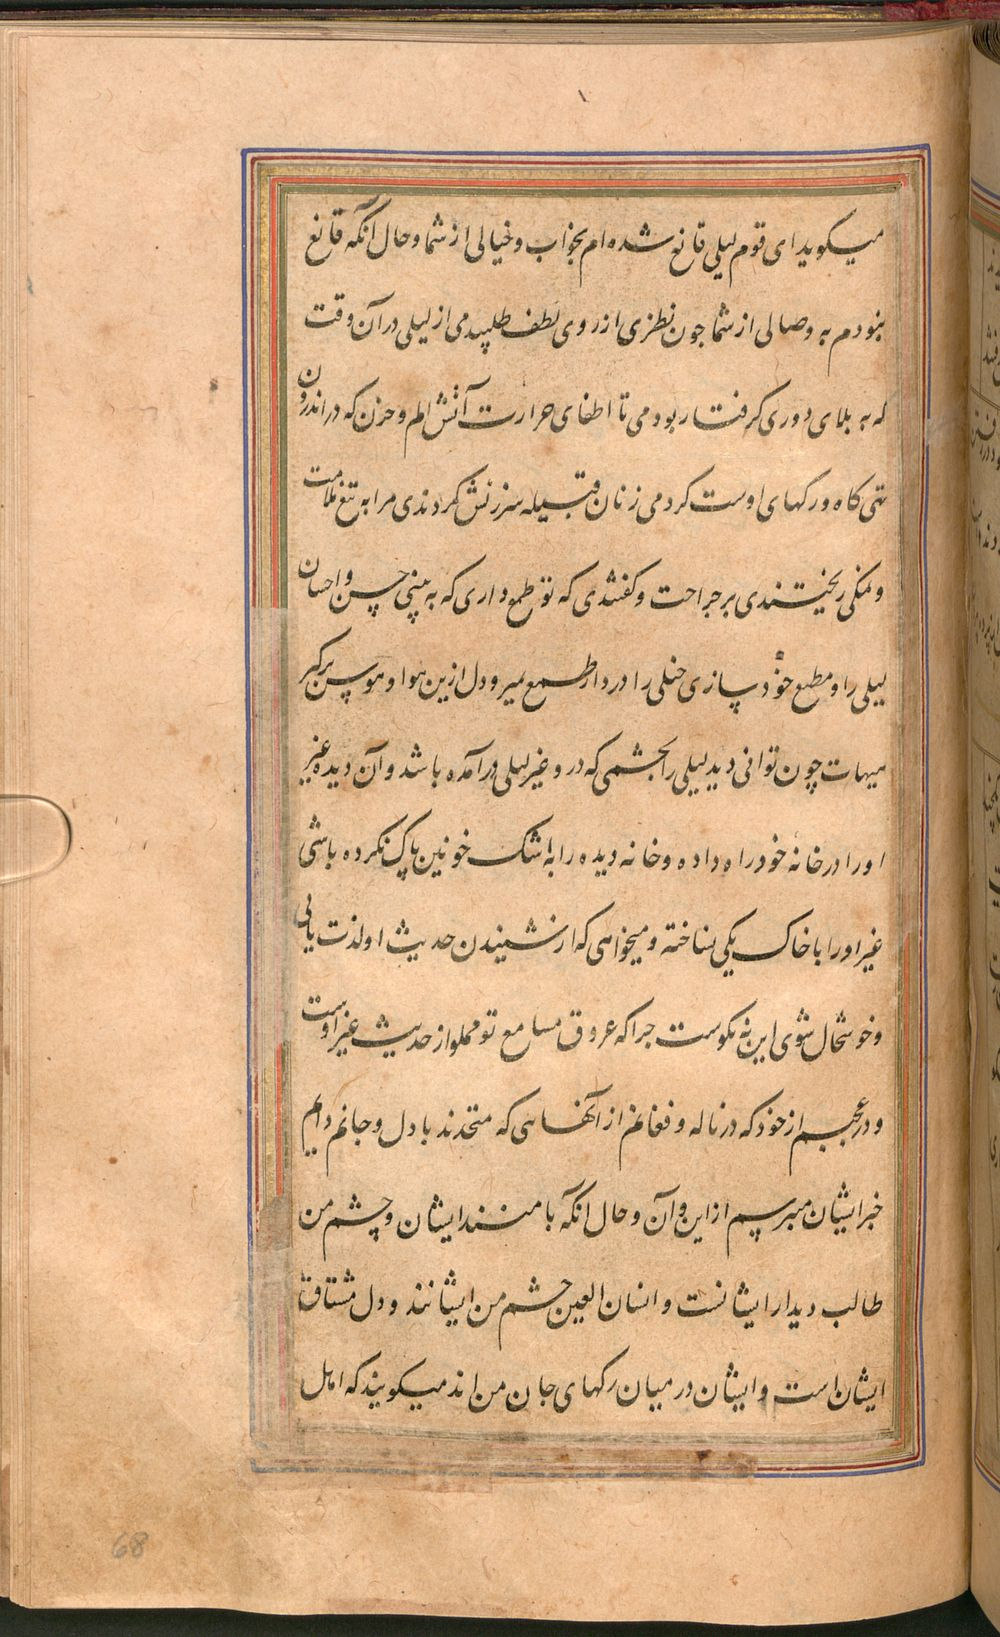 میکوید ای قوم لیلی قانع شده ام بخواب و خیالی از شما و حال آنکه قانع
نبودم به وصالی از شما جون نظری از روی لطف طلبیدمی از لیلی در آن وقت
که به بلای دوری کرفتار بودمی تا اطفای حرارت آتش الم و حزن که در اندرون
تهی کاه و رکهای اوست کردمی زنان قبیله سرزنش کردندی مرا به تیغ ملامت
و نمکی ریختندی بر جراحت و کفتندی که تو طمع داری که به بینی حسن و احسان
لیلی را و مطیع خود سازی را در دار طمع بمیر و دل ازین هوا و هوس برکیر
هیهات چون توانی دید لیلی را بچشمی که درو غیر لیلی درآمده باشد و آن دیده غیر
او را در خانه خود راه داده و خانه دیده را به اشک خونین پاک نکرده باشی
غیر او را با خاک یکی نساخته و میخواهی که از شنیدن حدیث او لذت یابی
و خوشحال شوی این نه نکوست جرا که عروق مسامع تو مملو از حدیث غیر اوست
و در عجبم از خود که در ناله و فغانم از آنهایی که متحدند با دل و جانم دایم
خبر ایشان میپرسم از این و آن و حال آنکه با منند ایشان و چشم من
طالب دیدار ایشانست و انسان العین چشم من ایشانند و دل مشتاق
ایشان است و ایشان در میان رکهای جان من اند میکویند که اهل
68